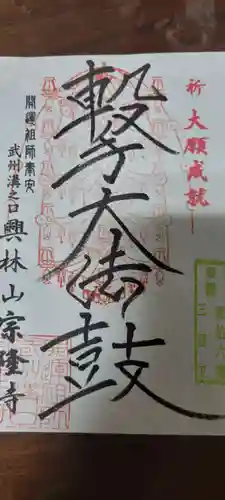 祈 大願成就
撃大御鼓
開運祖師奉安
武州溝之口
興林山宗隆寺